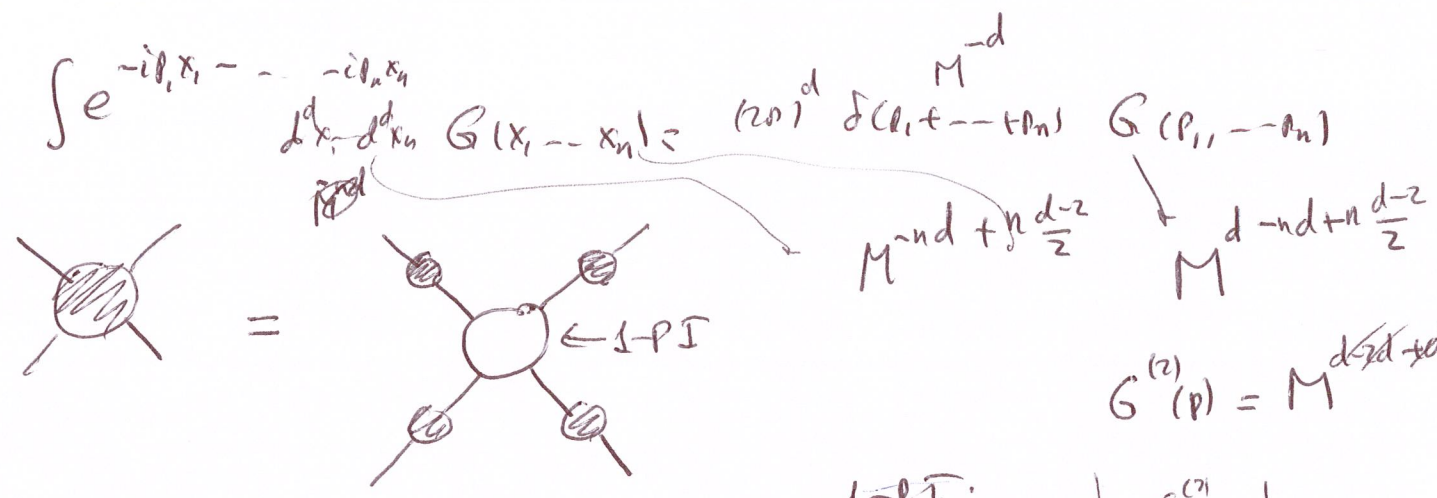 ∫ e^{-ip₁x₁ - - - - ip_n x_n} d^dx₁--d^dx_n G(x₁--x_n) = (2π)^d δ(p₁+--+p_n) G(p₁,--p_n)
M^{-d}
M^{-nd + n\frac{d-2}{2}} M^{d-nd+n\frac{d-2}{2}}
= ← 1-PI
G^{(2)}(p) = M
1-PI: